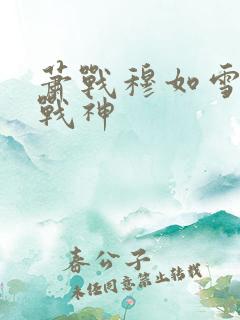 蕭戰穆如雪
戰神
春公子
未经同意禁止转载